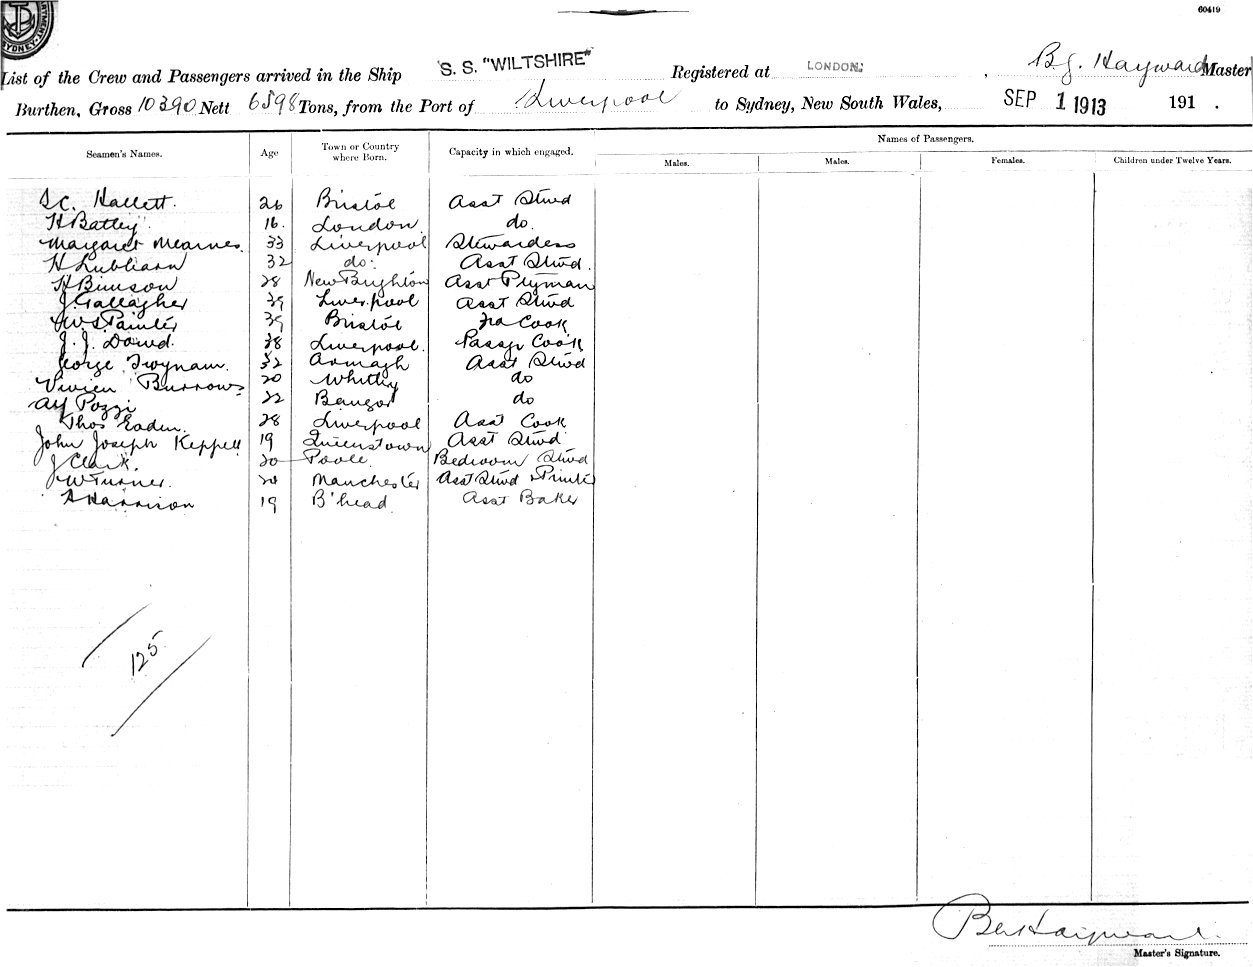 60419
SYDNEY
List of the Crew and Passengers arrived in the Ship S. S. "WILTSHIRE" Registered at LONDON, B.J. Hayward Master
Burthen, Gross 10390 Nett 6598 Tons, from the Port of Liverpool to Sydney, New South Wales, SEP 1 1913 191 .
Seamen's Names. Age Town or Country where Born. Capacity in which engaged. Names of Passengers.
Males. Males. Females. Children under Twelve Years.
Hallett. 26 Bristol Asst Stwd
H Batley 16. London do.
Margaret Mearnes 33 Liverpool Stewardess
H 32 do. Asst Stwd.
H Bimson 28 New Brighton Asst Ptyman
J. Gallagher 39 Liverpool Asst Stwd
Painter 39 Bristol Cook
J. J. Dowd. 38 Liverpool. Passgr Cook
George Twynam. 32 Armagh Asst Stwd
Vivien Burrows 20 Whitby do
Pozzi 22 Bangor do
Thos Eaden. 28 Liverpool Asst Cook
John Joseph Keppell 19 Queenstown Asst Stwd
J Clark. 20 Poole Bedroom Stwd
W Turner. Manchester Asst Stwd Printer
A Harrison 19 B'head Asst Baker
125
Hayward.
Master's Signature.